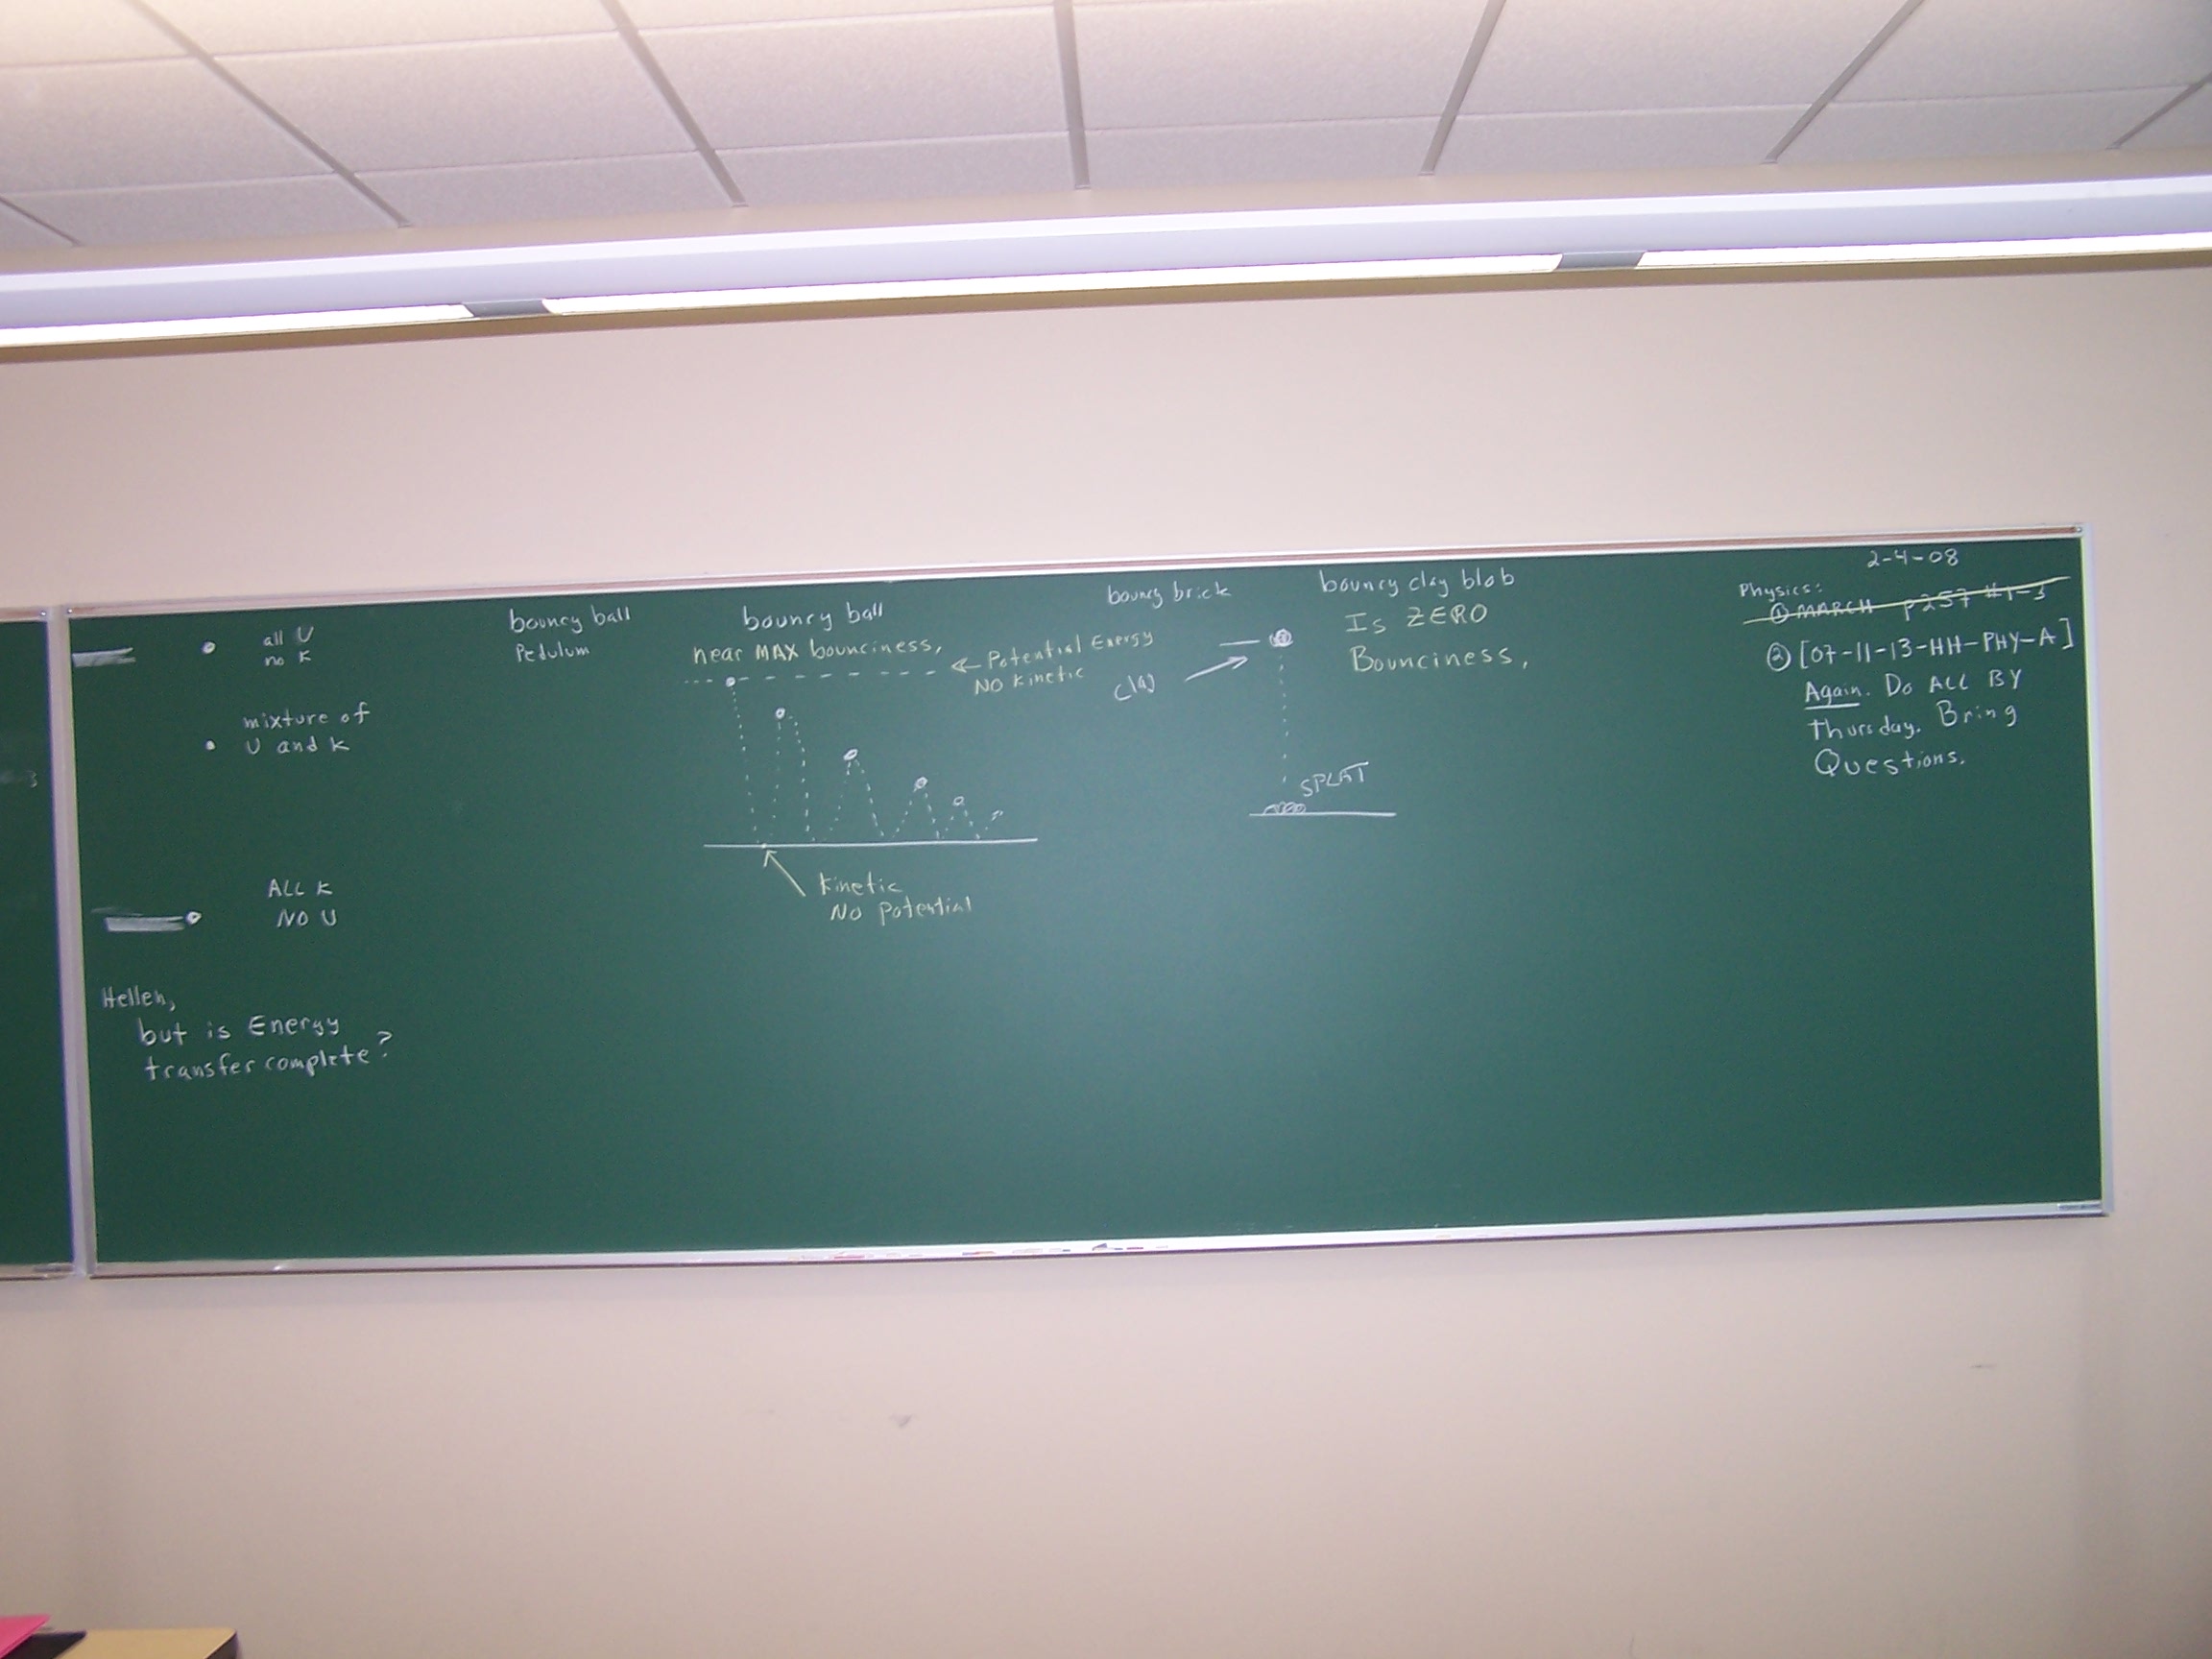 all U
no K
mixture of
U and K
ALL K
NO U
Hellen,
but is Energy
transfer complete?
bouncy ball
Pedulum
bouncy ball
near MAX bounciness,
← Potential Energy
NO Kinetic
Kinetic
No potential
bouncy brick
clay
bouncy clay blob
Is ZERO
Bounciness,
SPLAT
2-4-08
Physics:
① MARCH p257 #1-3
② [07-11-13-HH-PHY-A]
Again. Do ALL BY
Thursday. Bring
Questions.